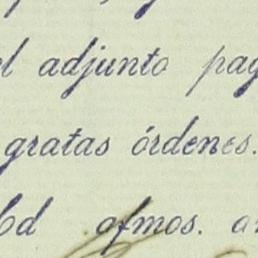 el adjunto pag
gratas órdenes.
Ud afmos. a